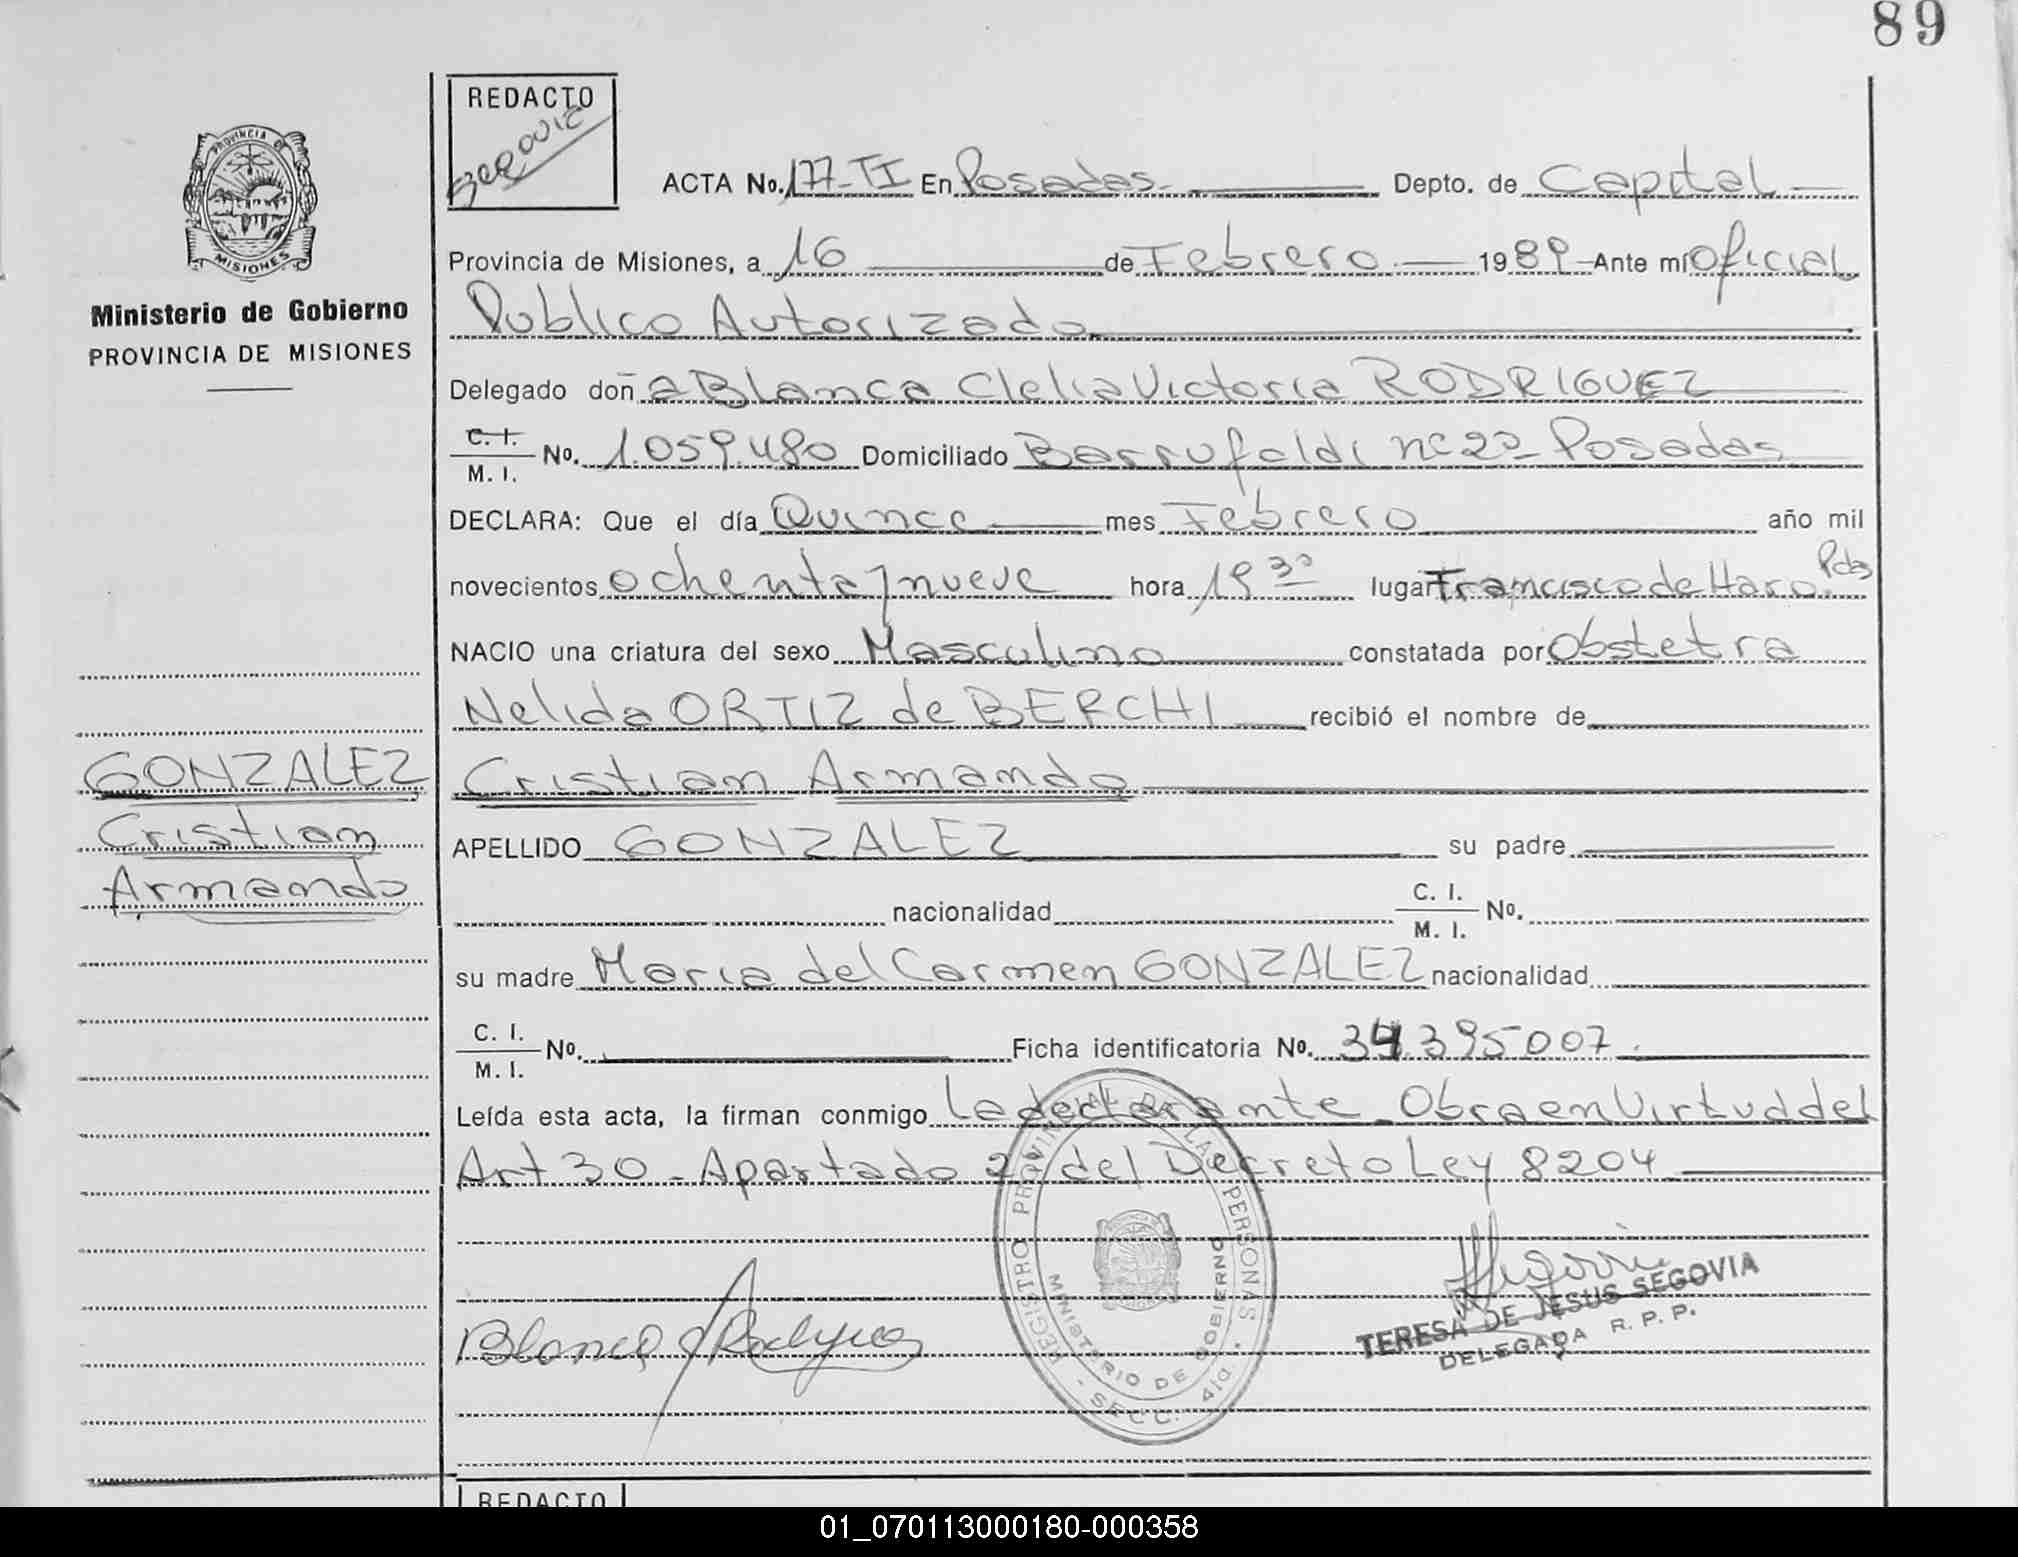 89
REDACTO
PROVINCIA D
MISIONES
Ministerio de Gobierno
PROVINCIA DE MISIONES
ACTA No. 177-TI En Posadas Depto. de Capital
Provincia de Misiones, a 16 de Febrero 1989 Ante mí Oficial
Publico Autorizado
Delegado doñ a Blanca Clelia Victoria RODRIGUEZ
C. I.
M. I. No. 1.059.480 Domiciliado Barrufaldi nº 20 Posadas
DECLARA: Que el día Quince mes Febrero año mil
novecientos ochenta y nueve hora 19 30 lugar Francisco de Haro. Pdas
NACIO una criatura del sexo Masculino constatada por Obstetra
Nelida ORTIZ de BERCHI recibió el nombre de
GONZALEZ
Cristian
Armando
Cristian Armando
APELLIDO GONZALEZ su padre
nacionalidad C. I. M. I. No.
su madre Maria del Carmen GONZALEZ nacionalidad
C. I. M. I. No. Ficha identificatoria No. 34.395007.
Leída esta acta, la firman conmigo la declarante Obra en Virtud del
Art 30 - Apartado 2 del Decreto Ley 8204
REGISTRO PROVINCIAL DE LAS PERSONAS
MINISTERIO DE GOBIERNO
- SECC. 4ta.
Blanca Rodriguez
Segovia
TERESA DE JESUS SEGOVIA
DELEGADA R. P. P.
REDACTO
01_070113000180-000358